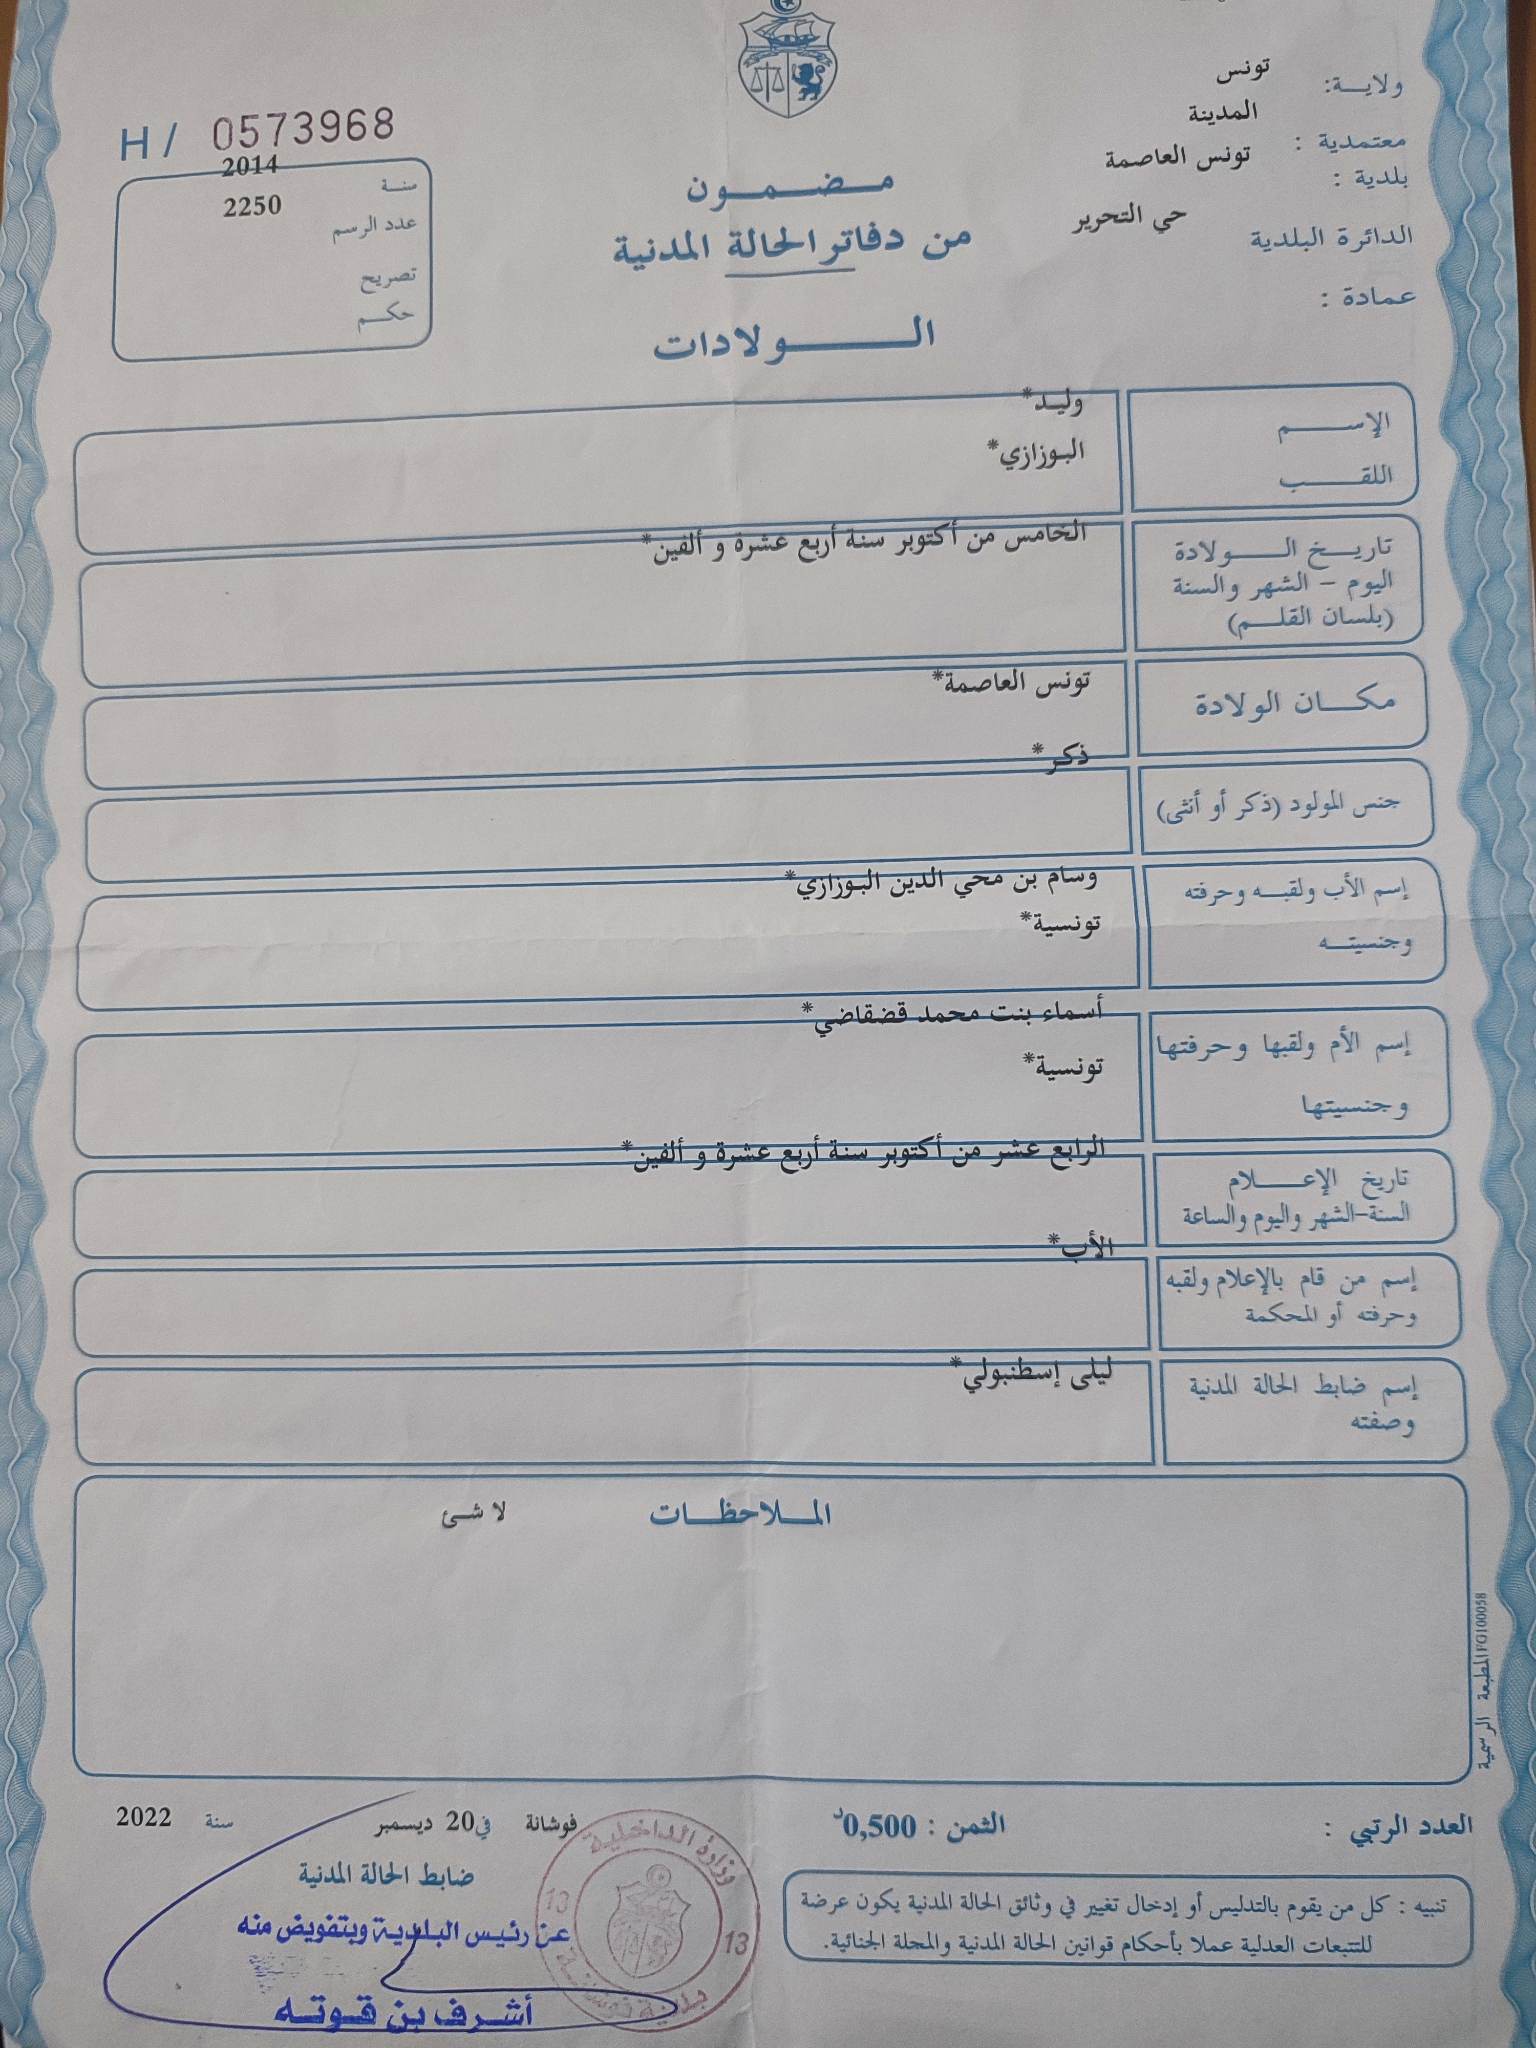 ولايـــة: تونس
معتمدية : المدينة
بلدية : تونس العاصمة
الدائرة البلدية حي التحرير
عمادة :
H / 0573968
سنـة 2014
عدد الرسم 2250
تصريح
حكـم
مـضـمـون
من دفاتر الحالة المدنية
الـولادات
الإســـم وليـد*
اللقـــب البوزازي*
تاريـخ الـــولادة الخامس من أكتوبر سنة أربع عشرة و ألفين*
اليوم - الشهر والسنة
(بلسان القلـم)
مكـــان الولادة تونس العاصمة*
جنس المولود (ذكر أو أنثى) ذكر*
إسم الأب ولقبـه وحرفته وسام بن محي الدين البوزازي*
وجنسيتـه تونسية*
إسم الأم ولقبها وحرفتها أسماء بنت محمد قضقاضي*
وجنسيتها تونسية*
تاريخ الإعــلام الرابع عشر من أكتوبر سنة أربع عشرة و ألفين*
السنة-الشهر واليوم والساعة
إسم من قام بالإعلام ولقبه الأب*
وحرفته أو المحكمة
إسم ضابط الحالة المدنية ليلى إسطنبولي*
وصفته
المـلاحظـات لا شـئ
المطبعة الرسمية FG100058
العدد الرتبي :
الثمن : 0,500د
فوشانة في 20 ديسمبر سنة 2022
ضابط الحالة المدنية
عن رئيس البلدية وبتفويض منه
أشرف بن قوتـه
وزارة الداخلية
13 13
بلدية فوشانة
تنبيه : كل من يقوم بالتدليس أو إدخال تغيير في وثائق الحالة المدنية يكون عرضة
للتتبعات العدلية عملا بأحكام قوانين الحالة المدنية والمجلة الجنائية.